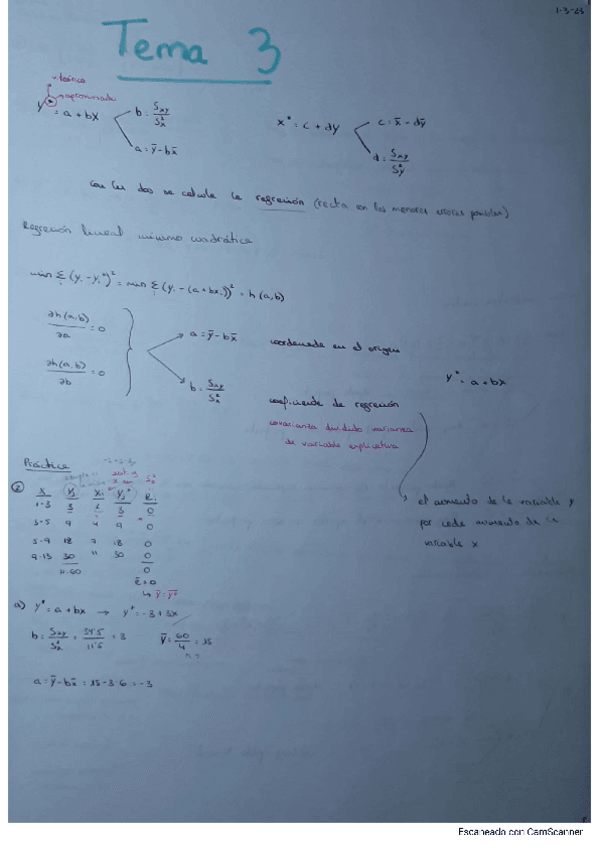 1-3-23
Tema 3
teórica
aproximada
y* = a + bx
b = Sxy / S²x
a = ȳ - bx̄
x* = c + dy
c = x̄ - dȳ
d = Sxy / S²y
Con las dos se calcula la regresión (recta en los menores errores posibles)
Regresión lineal mínimo cuadrática
min Σ (yi - yi*)² = min Σ (yi - (a + bxi))² = h(a,b)
∂h(a,b) / ∂a = 0
∂h(a,b) / ∂b = 0
a = ȳ - bx̄ coordenada en el origen
b = Sxy / S²x coeficiente de regresión
covarianza dividido varianza
de variable explicativa
y* = a + bx
el aumento de la variable y
por cada aumento de la
variable x
Práctica
2
x yj xi yj* ei
1-3 3 2 3 0
3-5 9 4 9 0
5-9 18 7 18 0
9-13 30 11 30 0
60 0
ē = 0
↳ ȳ = ȳ*
a) y* = a + bx → y* = -3 + 3x
b = Sxy / S²x = 34'5 / 11'5 = 3 ȳ = 60 / 4 = 15
a = ȳ - bx̄ = 15 - 3·6 = -3
Escaneado con CamScanner